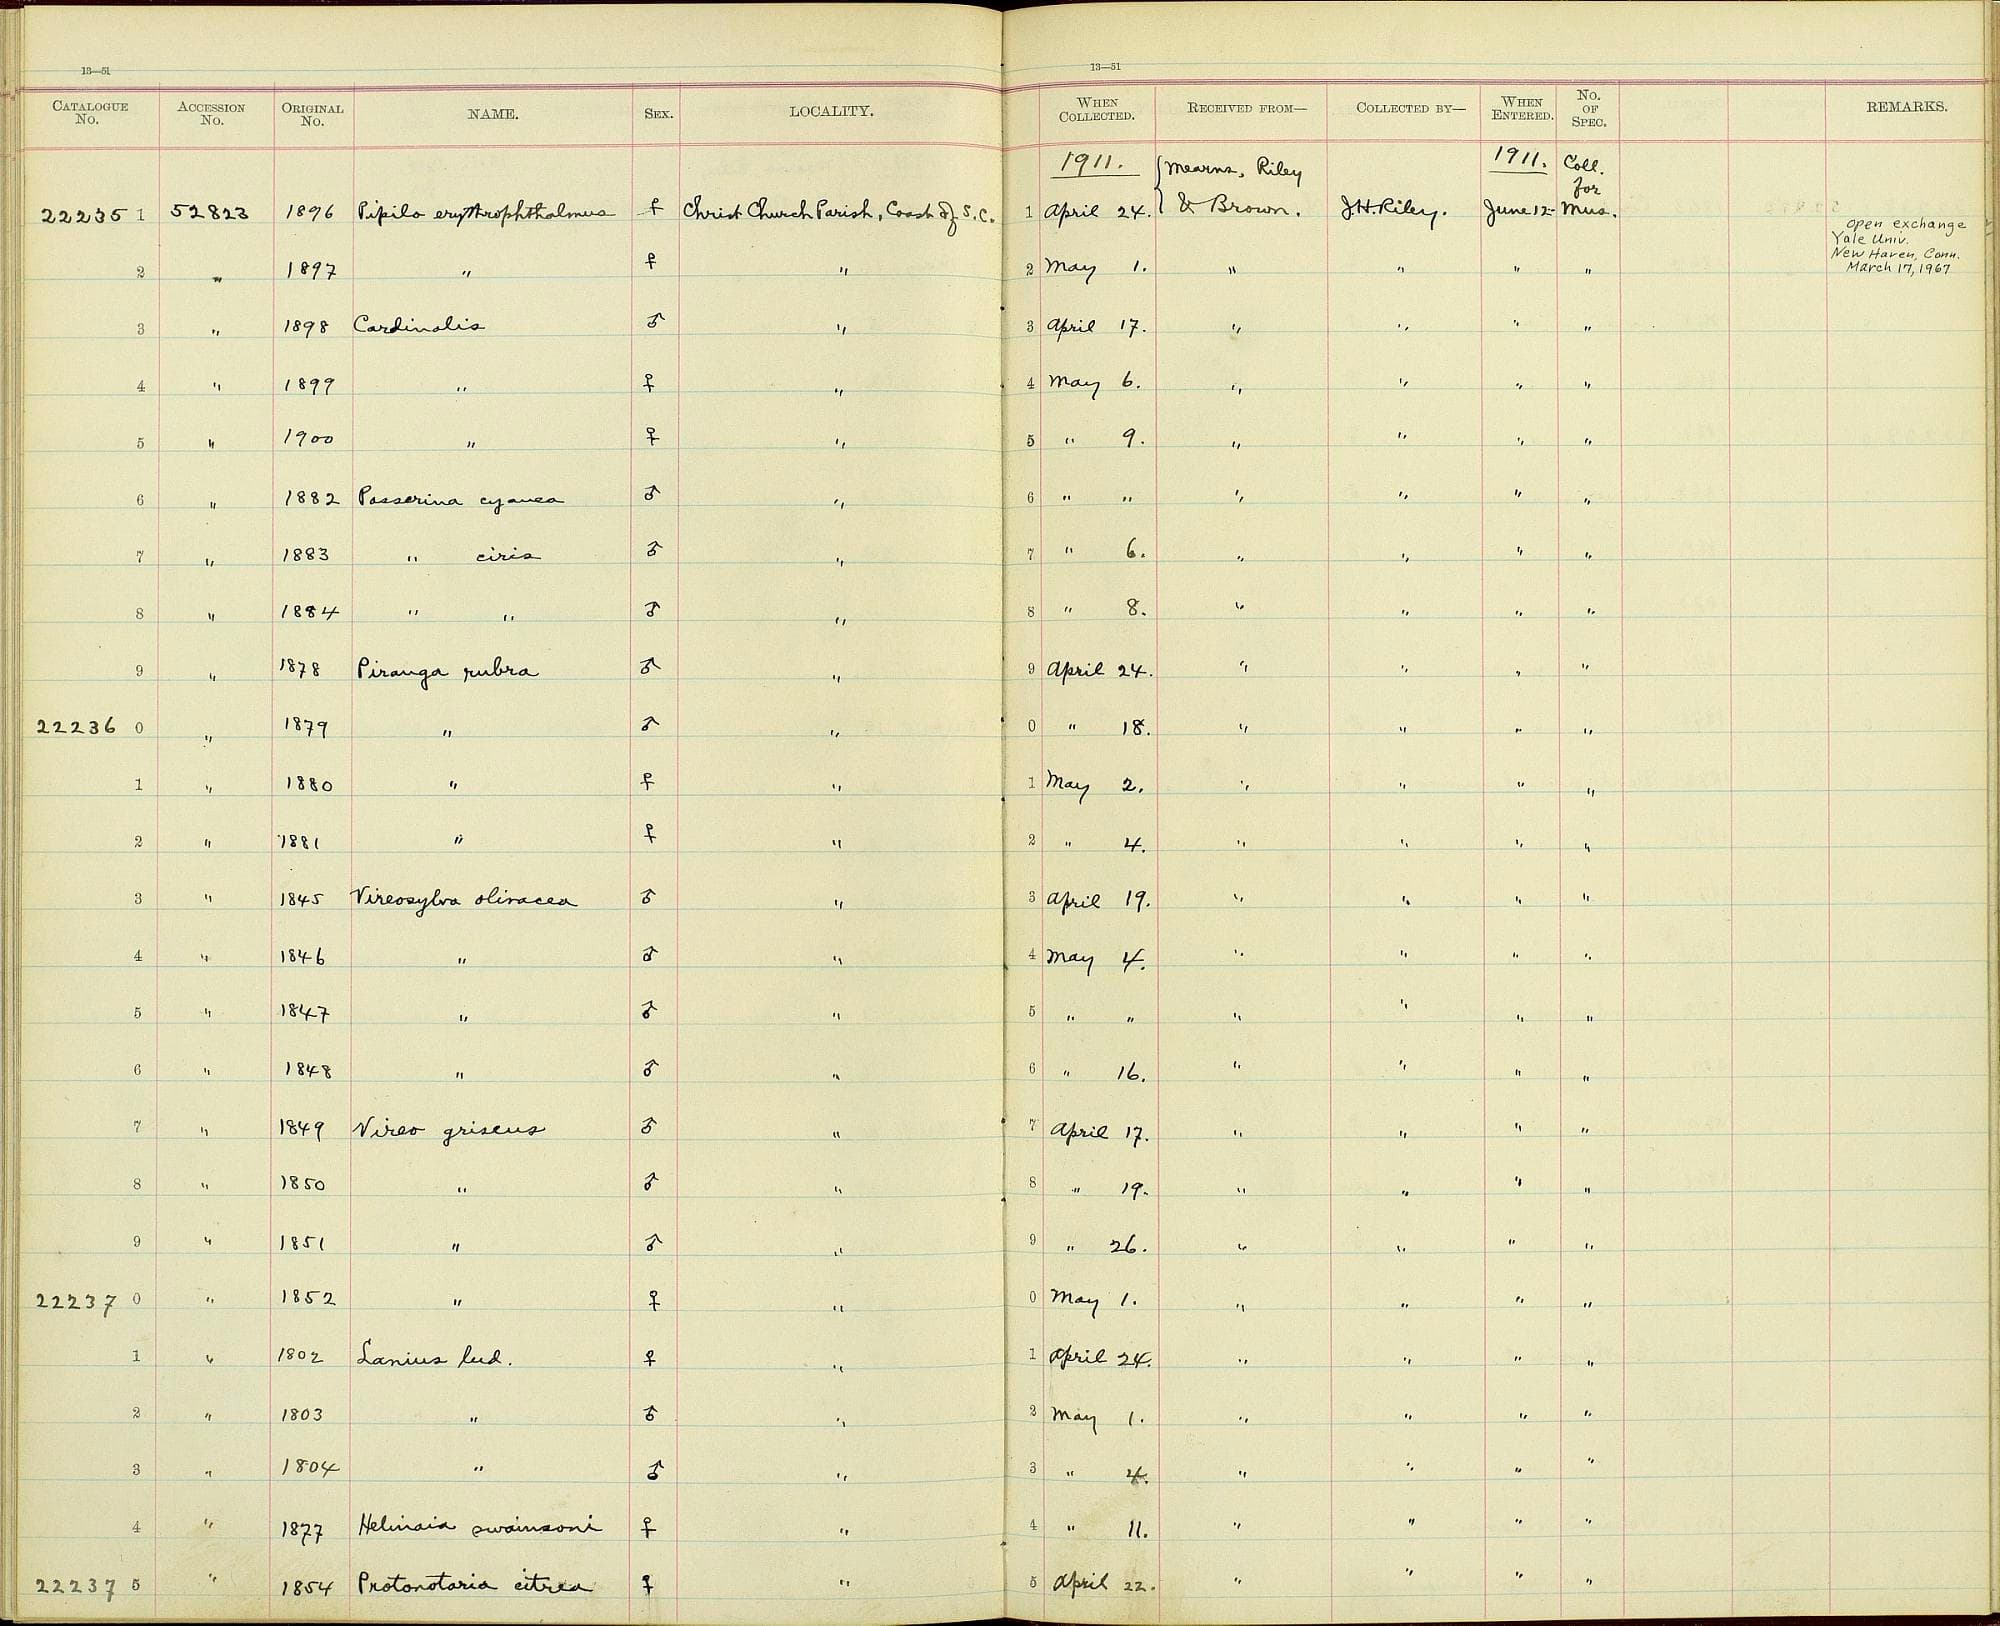 13—51
CATALOGUE No. ACCESSION No. ORIGINAL No. NAME. SEX. LOCALITY.
22235 1 52823 1896 Pipilo erythrophthalmus ♀ Christ Church Parish, Coast of S.C.
2 " 1897 " ♀ "
3 " 1898 Cardinalis ♂ "
4 " 1899 " ♀ "
5 " 1900 " ♀ "
6 " 1882 Passerina cyanea ♂ "
7 " 1883 " ciris ♂ "
8 " 1884 " " ♂ "
9 " 1878 Piranga rubra ♂ "
22236 0 " 1879 " ♂ "
1 " 1880 " ♀ "
2 " 1881 " ♀ "
3 " 1845 Vireosylva olivacea ♂ "
4 " 1846 " ♂ "
5 " 1847 " ♂ "
6 " 1848 " ♂ "
7 " 1849 Vireo griseus ♂ "
8 " 1850 " ♂ "
9 " 1851 " ♂ "
22237 0 " 1852 " ♀ "
1 " 1802 Lanius lud. ♀ "
2 " 1803 " ♂ "
3 " 1804 " ♂ "
4 " 1877 Helinaia swainsoni ♀ "
22237 5 " 1854 Protonotaria citrea ♀ "
13—51
WHEN COLLECTED. RECEIVED FROM— COLLECTED BY— WHEN ENTERED. No. OF SPEC. REMARKS.
1911. Mearns, Riley 1911. Coll. for
1 April 24. & Brown. J.H. Riley. June 12- Mus.
open exchange
Yale Univ.
New Haven, Conn.
March 17, 1967
2 May 1. " " " "
3 April 17. " " " "
4 May 6. " " " "
5 " 9. " " " "
6 " " " " " "
7 " 6. " " " "
8 " 8. " " " "
9 April 24. " " " "
0 " 18. " " " "
1 May 2. " " " "
2 " 4. " " " "
3 April 19. " " " "
4 May 4. " " " "
5 " " " " " "
6 " 16. " " " "
7 April 17. " " " "
8 " 19. " " " "
9 " 26. " " " "
0 May 1. " " " "
1 April 24. " " " "
2 May 1. " " " "
3 " 4. " " " "
4 " 11. " " " "
5 April 22. " " " "